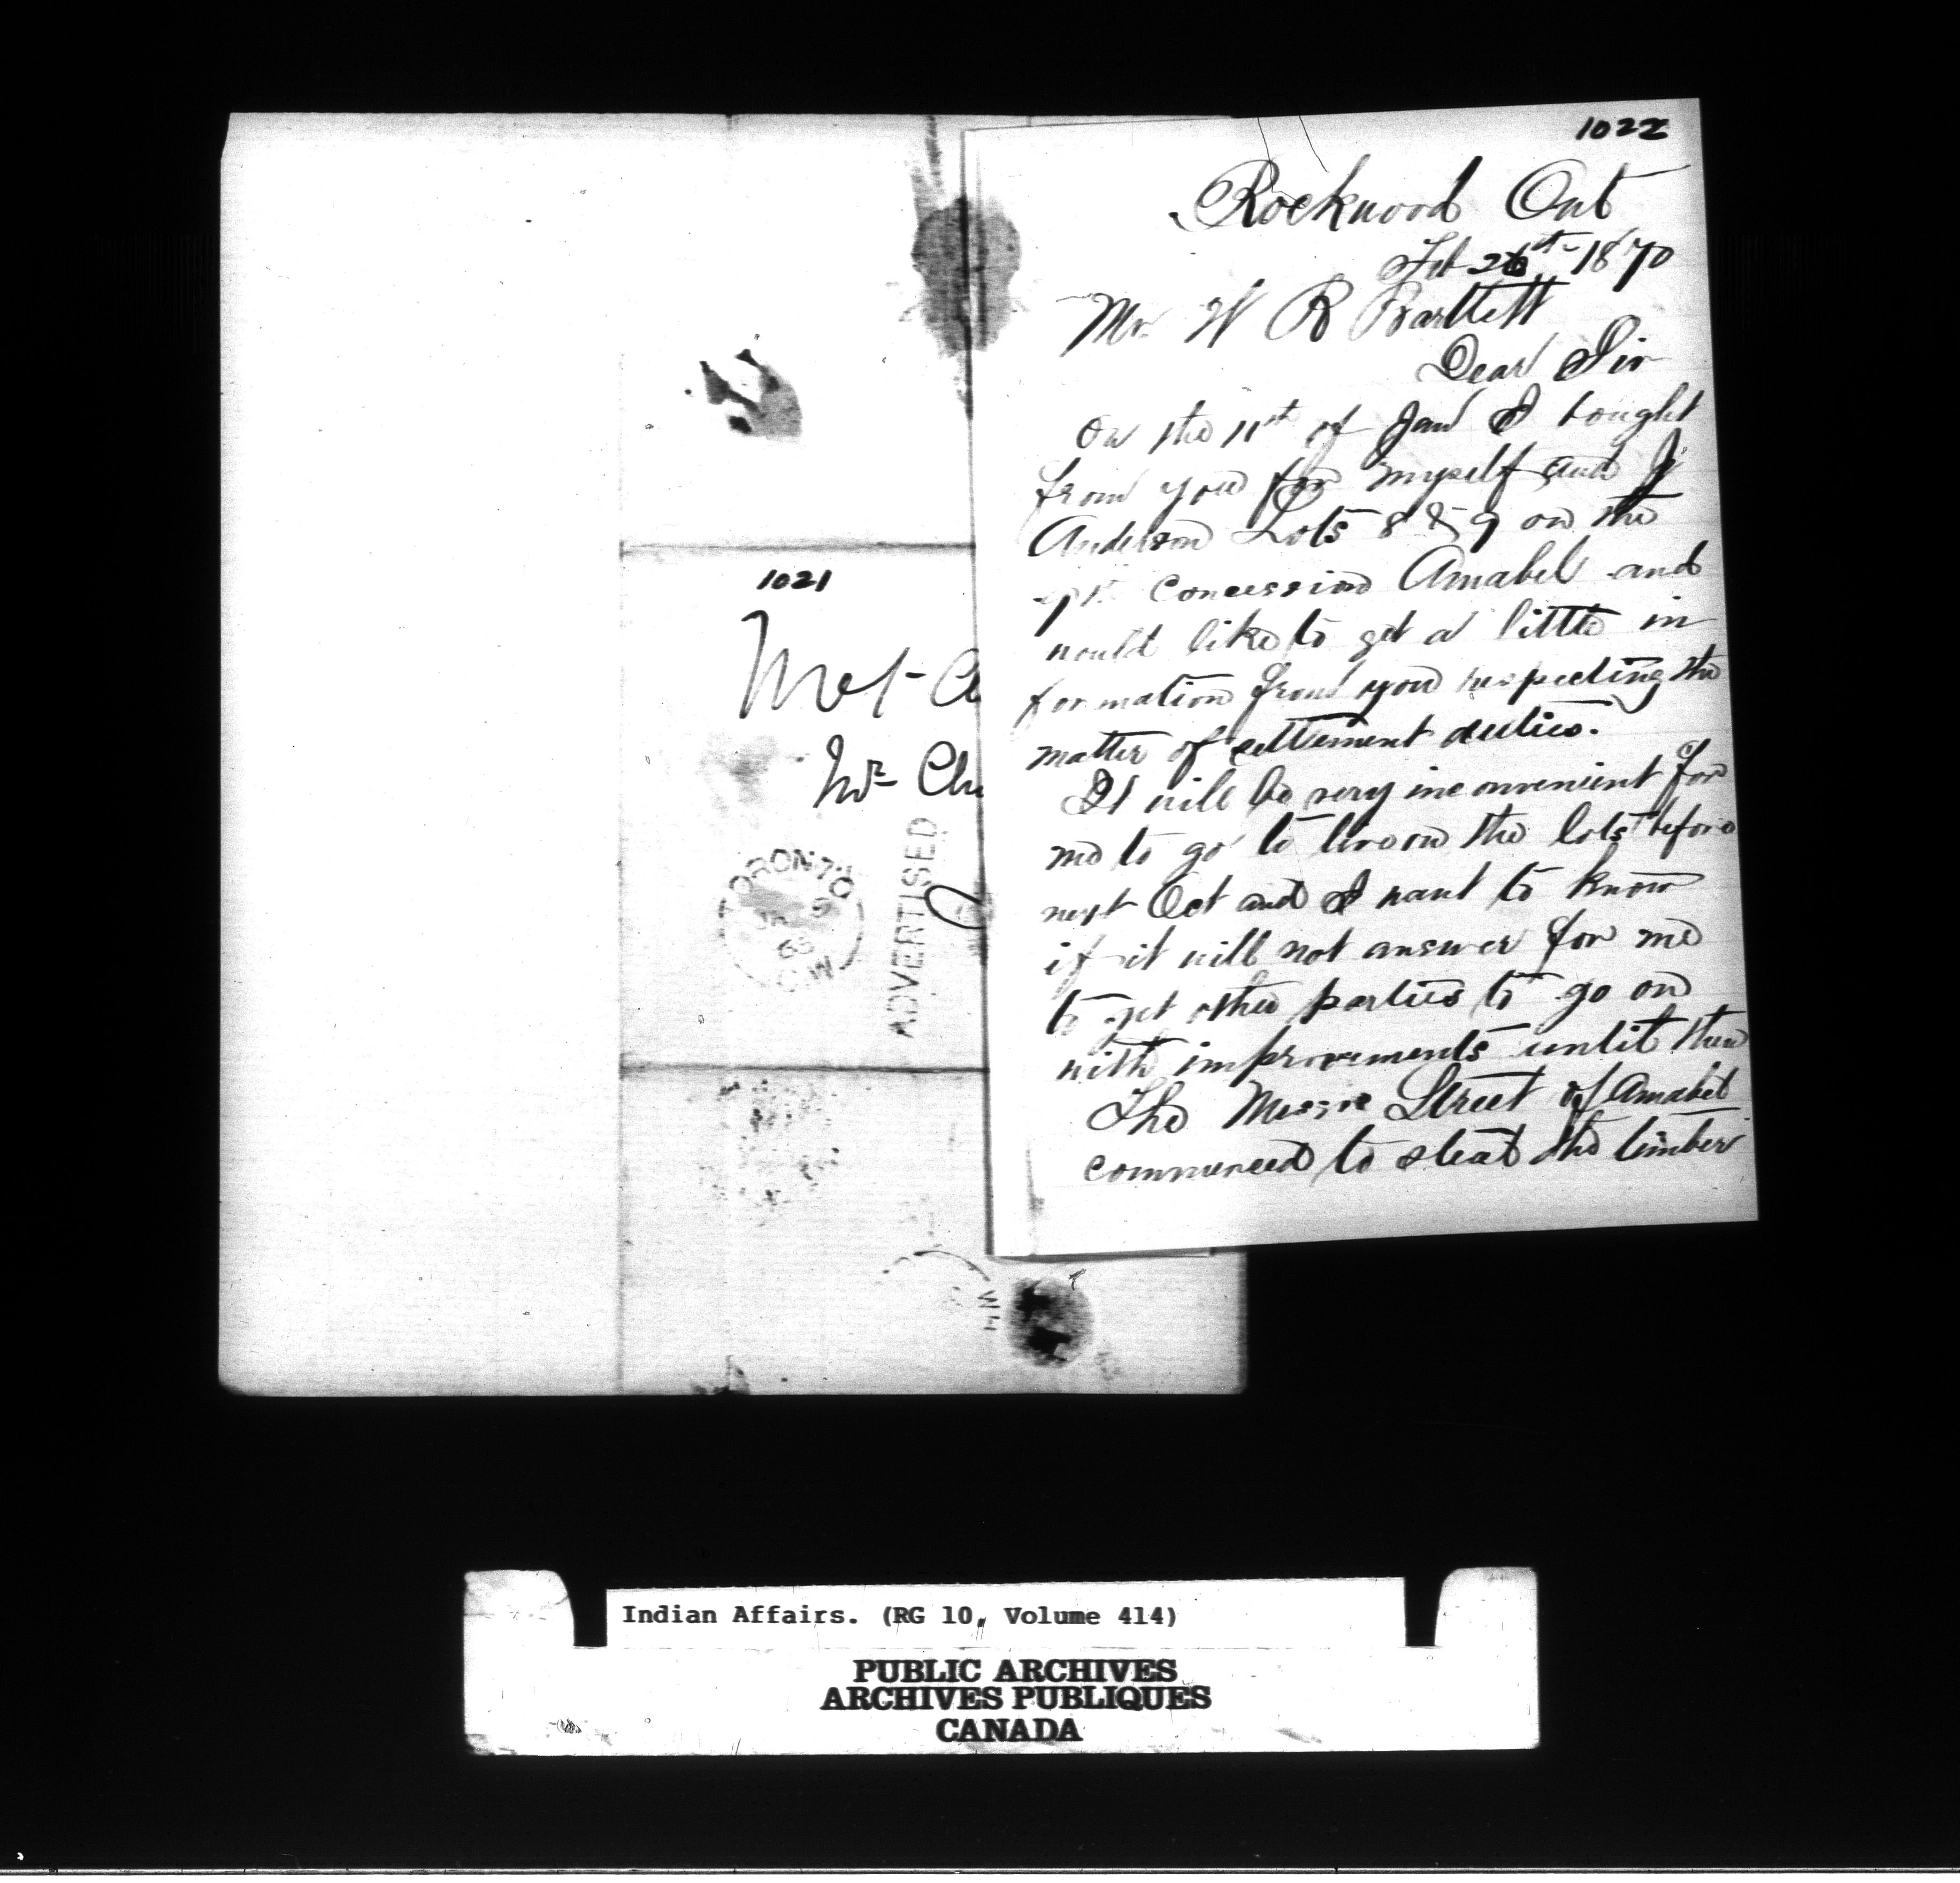 1021
TORONTO
63
C.W
ADVERTISED
1022
Rockwood Ont
Feb 26th 1870
Mr. W R Bartlett
Dear Sir
On the 11th of Jan I bought
from you for myself and
Anderson Lots 8 & 9 on the
Concession Amabel and
would like to get a little in
formation from you respecting the
matter of settlement duties.
It will be very inconvenient for
me to go to live on the lots before
next Oct and I want to know
if it will not answer for me
to get other parties to go on
with improvements until then
The Messrs Street of Amabel
commenced to steal the timber
Indian Affairs. (RG 10, Volume 414)
PUBLIC ARCHIVES
ARCHIVES PUBLIQUES
CANADA